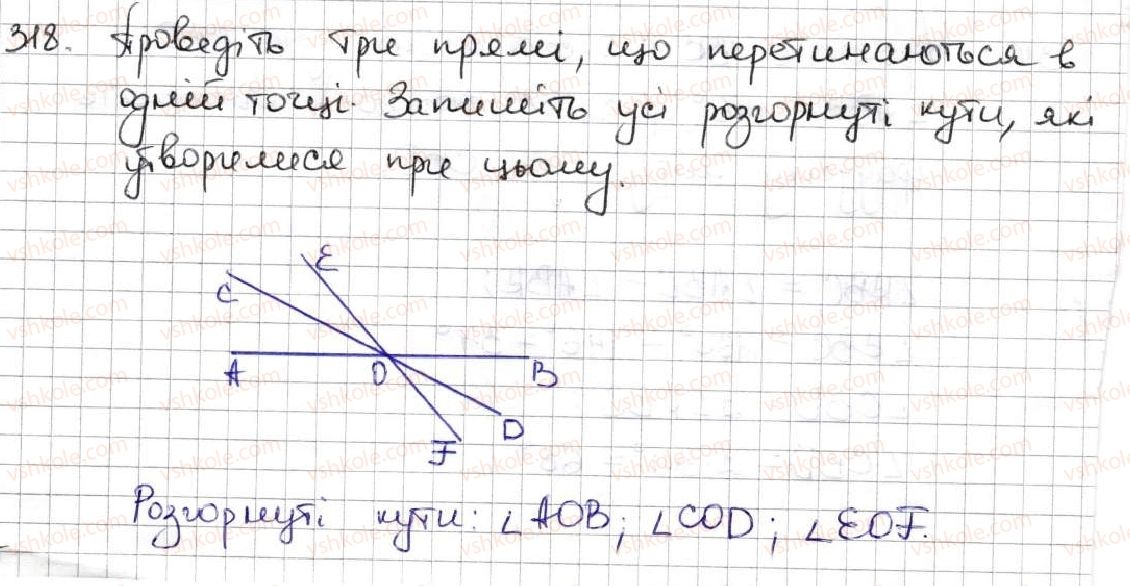 318. Проведіть три прямі, що перетинаються в
одній точці. Запишіть усі розгорнуті кути, які
утворилися при цьому.
E
C
A O B
D
F
Розгорнуті кути: ∠AOB; ∠COD; ∠EOF.